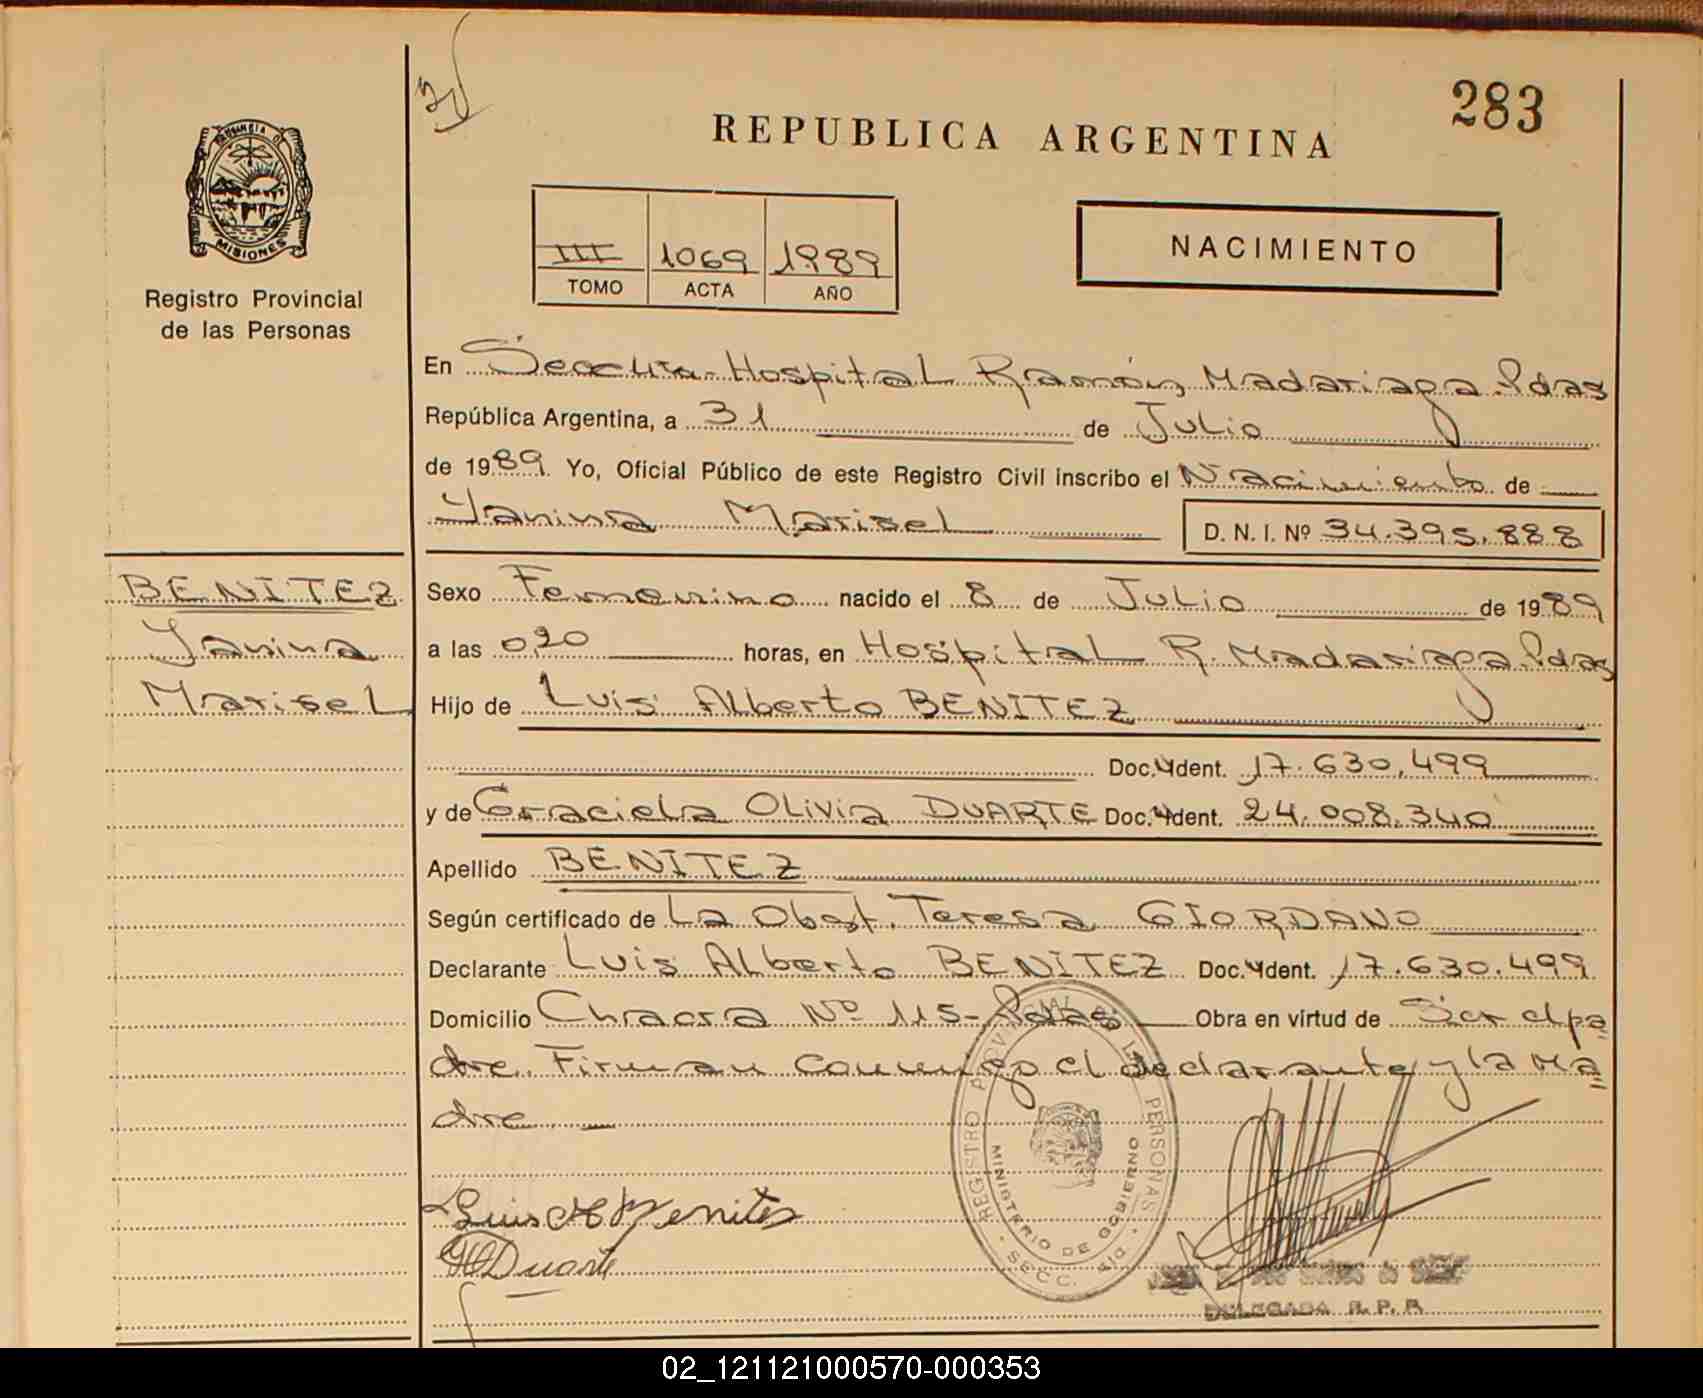 283
REPUBLICA ARGENTINA
PROVINCIA D
MISIONES
Registro Provincial
de las Personas
III 1069 1989
TOMO ACTA AÑO
NACIMIENTO
En Secc 4ta Hospital Ramón Madariaga Pdas
República Argentina, a 31 de Julio
de 1989. Yo, Oficial Público de este Registro Civil inscribo el Nacimiento de
Yanina Marisel D. N. I. Nº 34.395.888
BENITEZ
Yanina
Marisel
Sexo Femenino nacido el 8 de Julio de 1989
a las 0,20 horas, en Hospital R. Madariaga Pdas
Hijo de Luis Alberto BENITEZ
Doc. Ident. 17.630.499
y de Graciela Olivia DUARTE Doc. Ident. 24.008.340
Apellido BENITEZ
Según certificado de La Obst. Teresa GIORDANO
Declarante Luis Alberto BENITEZ Doc. Ident. 17.630.499
Domicilio Chacra Nº 115 - Pdas Obra en virtud de Ser el pa
dre. Firman conmigo el declarante y la ma
dre. —
Luis A Benites
GODuarte
REGISTRO PROVINCIAL DE LAS PERSONAS
MINISTERIO DE GOBIERNO
SECC. 4ta
DELEGADA R. P. P.
02_121121000570-000353